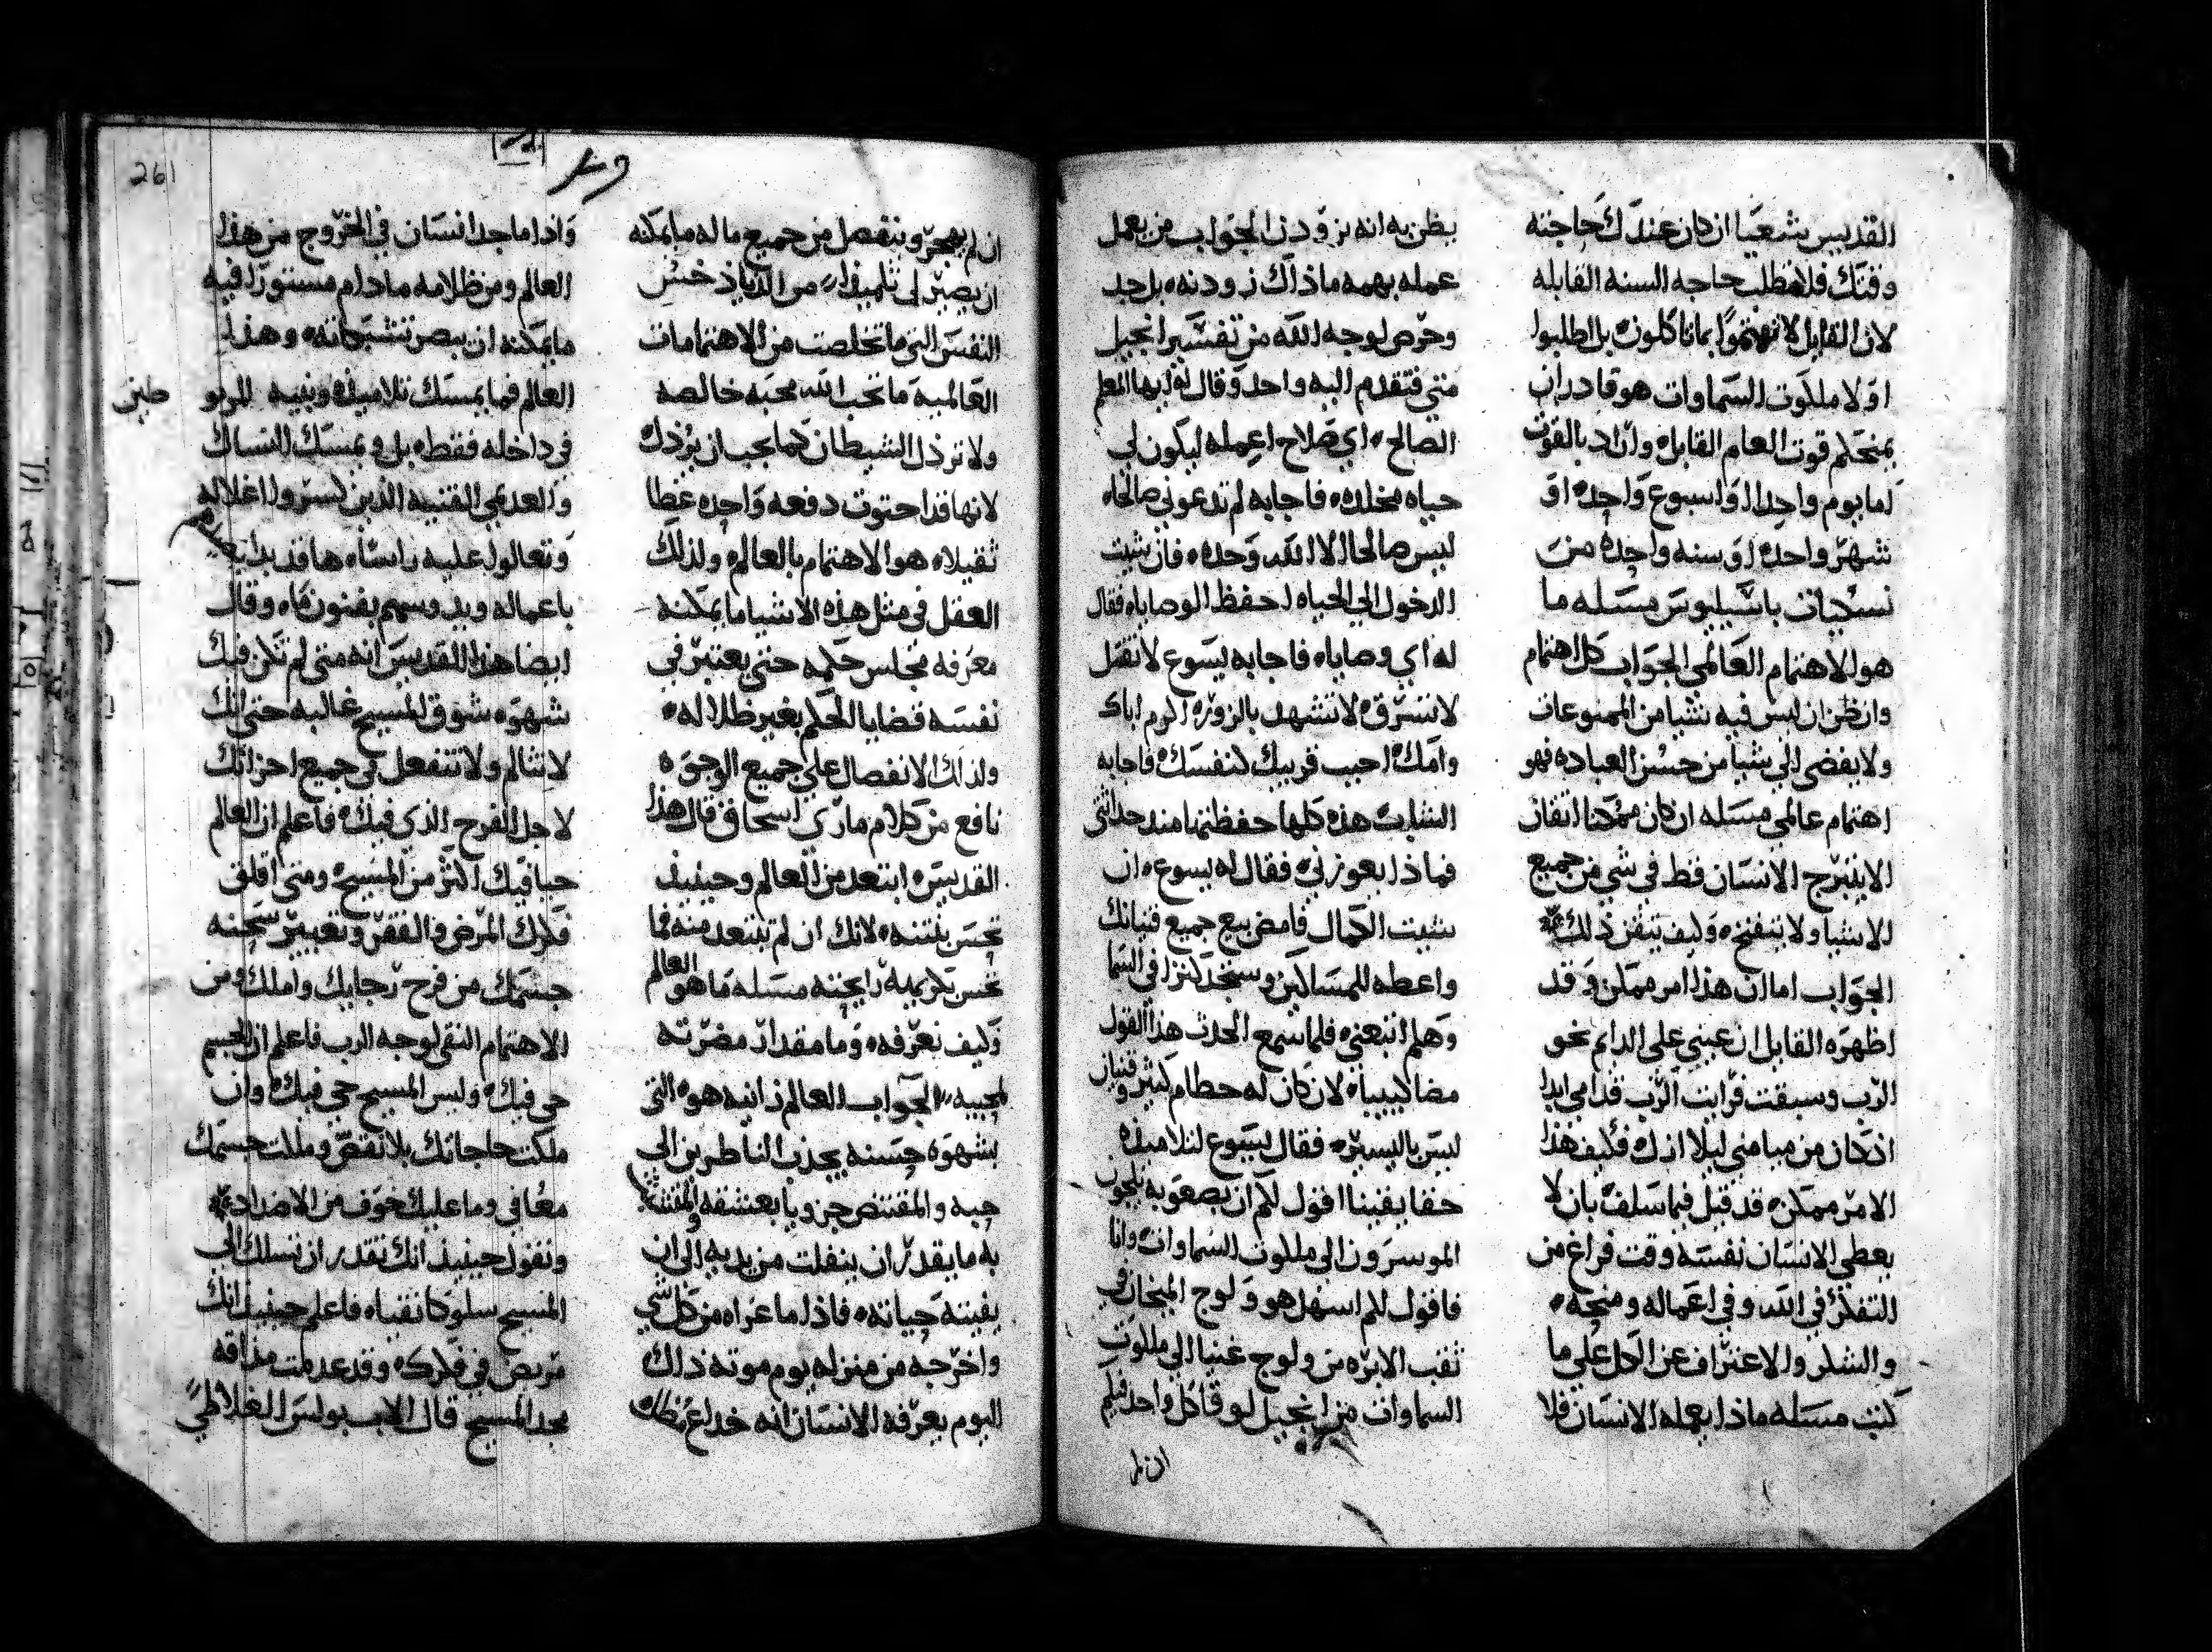 القديس شعيا ان كان عندك حاجته
وقتك فلا تطلب حاجه السنه القابله
لان القايل لا تهتموا بماتاكلون بل اطلبوا
اولا ملكوت السماوات هو قادر ان
يمنحكم قوت العام القابله واراد بالقوت
اما يوم واحدا او اسبوع واحده او
شهر واحده او سنه واحده من
نسكيات باسيليوس مسله ما
هو الاهتمام العالمي الجواب كل اهتمام
وان ظن ان ليس فيه شيا من الممنوعات
ولا يفضي الي شيا من حسن العباده فهو
اهتمام عالمي مسله ان كان ممكنا اتقان
الا ينبرح الانسان فقط في شي من جميع
الاشيا ولا يتنفخ وكيف يتقن ذلك
الجواب اما ان هذا امر ممكن وقد
اظهره القايل ان عيني على الدايم نحو
الرب وسبقت فرايت الرب قدامي ابدا
اذ كان من ميامني ليلا ازل فكيف هذا
الامر ممكن قد قيل فيما سلف بان لا
يعطي الانسان نفسه وقت فراغ من
التفكر في الله وفي اعماله ومنحه
والشكر والاعتراف عن الكل علي ما
كتب مسله ماذا يعمله الانسان فلا
يظن به انه نزودن الجواب من يعمل
عمله بهمه ماذاك نزودنه بل جد
وحرص لوجه الله من تفسير انجيل
متي فتقدم اليه واحد وقال له ايها المعلم
الصالح اي صلاح اعمله ليكون لي
حياه مخلده فاجابه لم تدعوني صالحاه
ليس صالحا الا الله وحده فان شيت
الدخول الي الحياه احفظ الوصاياه فقال
له اي وصاياه فاجابه يسوع لا تقتل
لا تسرق لا تشهد بالزور اكرم اباك
وامك احبب قريبك كنفسك فاجابه
الشاب هذه كلها حفظتها مند حداثتي
فماذا يعوزني فقال له يسوع ان
شيت الكمال فامض بيع جميع قنيانك
واعطه للمساكين وستجد كنزا في السما
وهلم اتبعني فلما سمع الحدث هذا القول
مضا كييبا لان كان له حطام كثير وقنيان
ليس باليسير فقال يسوع لتلاميذه
حقا يقينا اقول لكم ان بصعوبه يلجون
الموسرون الي ملكوت السماوات وانا
فاقول لكم اسهل هو ولوج المنجان في
ثقب الابره من ولوج غنيا الي ملكوت
السماوات من انجيل لوقا كل واحد فيكم
ان لم
ان لم يهجر وينفصل من جميع ماله ما يمكنه
ان يصير لي تلميذا من
النفس التي ما تخلصت من الاهتمامات
العالميه ما تحب الله محبه خالصه
ولا ترذل الشيطان كما يجب ان يرذل
لانها قد احتوت دفعه واحده غطا
ثقيلا هو الاهتمام بالعالم ولذلك
العقل في مثل هذه الاشيا ما يمكنه
معرفه مجلس حكمه حتي يعتبر في
نفسه قضايا الحكم بغير ظلاله
ولذلك الانفصال علي جميع الوجوه
نافع من كلام ماري اسحاق قال هذا
القديس ابتعد من العالم وحينيذ
تحس بنتنه لانك ان لم تبتعد منه فما
تحس بكريه رايحته مسله ما هو العالم
وكيف نعرفه وما مقدار مضرته
لمحبيه الجواب العالم زانيه هو التي
بشهوه حسنه يجذب الناظرين الي
حبه والمقتنص جزويا بعشقه والمتشبث
به ما يقدر ان ينفلت من يديه الي ان
يفنيه حياته فاذا ما عراه من كل شي
واخرجه من منزله يوم موته ذلك
اليوم يعرفه الانسان انه خداع
واذا ما جد انسان في الخروج من هذا
العالم ومن ظلامه ما دام مستورا فيه
ما يمكنه ان يبصر تشبكاته وهذا
العالم فما يمسك تلاميذه وبنيه
في داخله فقط بل ويمسك النساك
والعديمي القنيه الذين كسروا اغلاله
وتعالوا عليه راسا ها قد بدا
باعماله ويدوسهم بفنون ما وقال
ايضا هذا القديس انه متى لم تكن فيك
شهوه شوق المسيح غالبه حتي انك
لا تتالم ولا تنفعل في جميع احزانك
لاجل الفرح الذي فيك فاعلم ان العالم
حيا فيك اكثر من المسيح ومتي اقلق
فكرك المرض والفقر وتغيير سحنه
جسمك من فرح رجايك واملك ومن
الاهتمام النقي لوجه الرب فاعلم ان الجسم
حي فيك وليس المسيح حي فيك وان
ملكت حاجاتك بلا نقص وملكت جسمك
معافي وما عليك خوف من الاضداد
وتقول حينيذ انك تقدر ان تسلك الي
المسيح سلوكا نقيا فاعلم حينيذ انك
مريض في فكرك وقد عدمت مذاقه
مجد المسيح قال الاب بولس الغلاطي
261